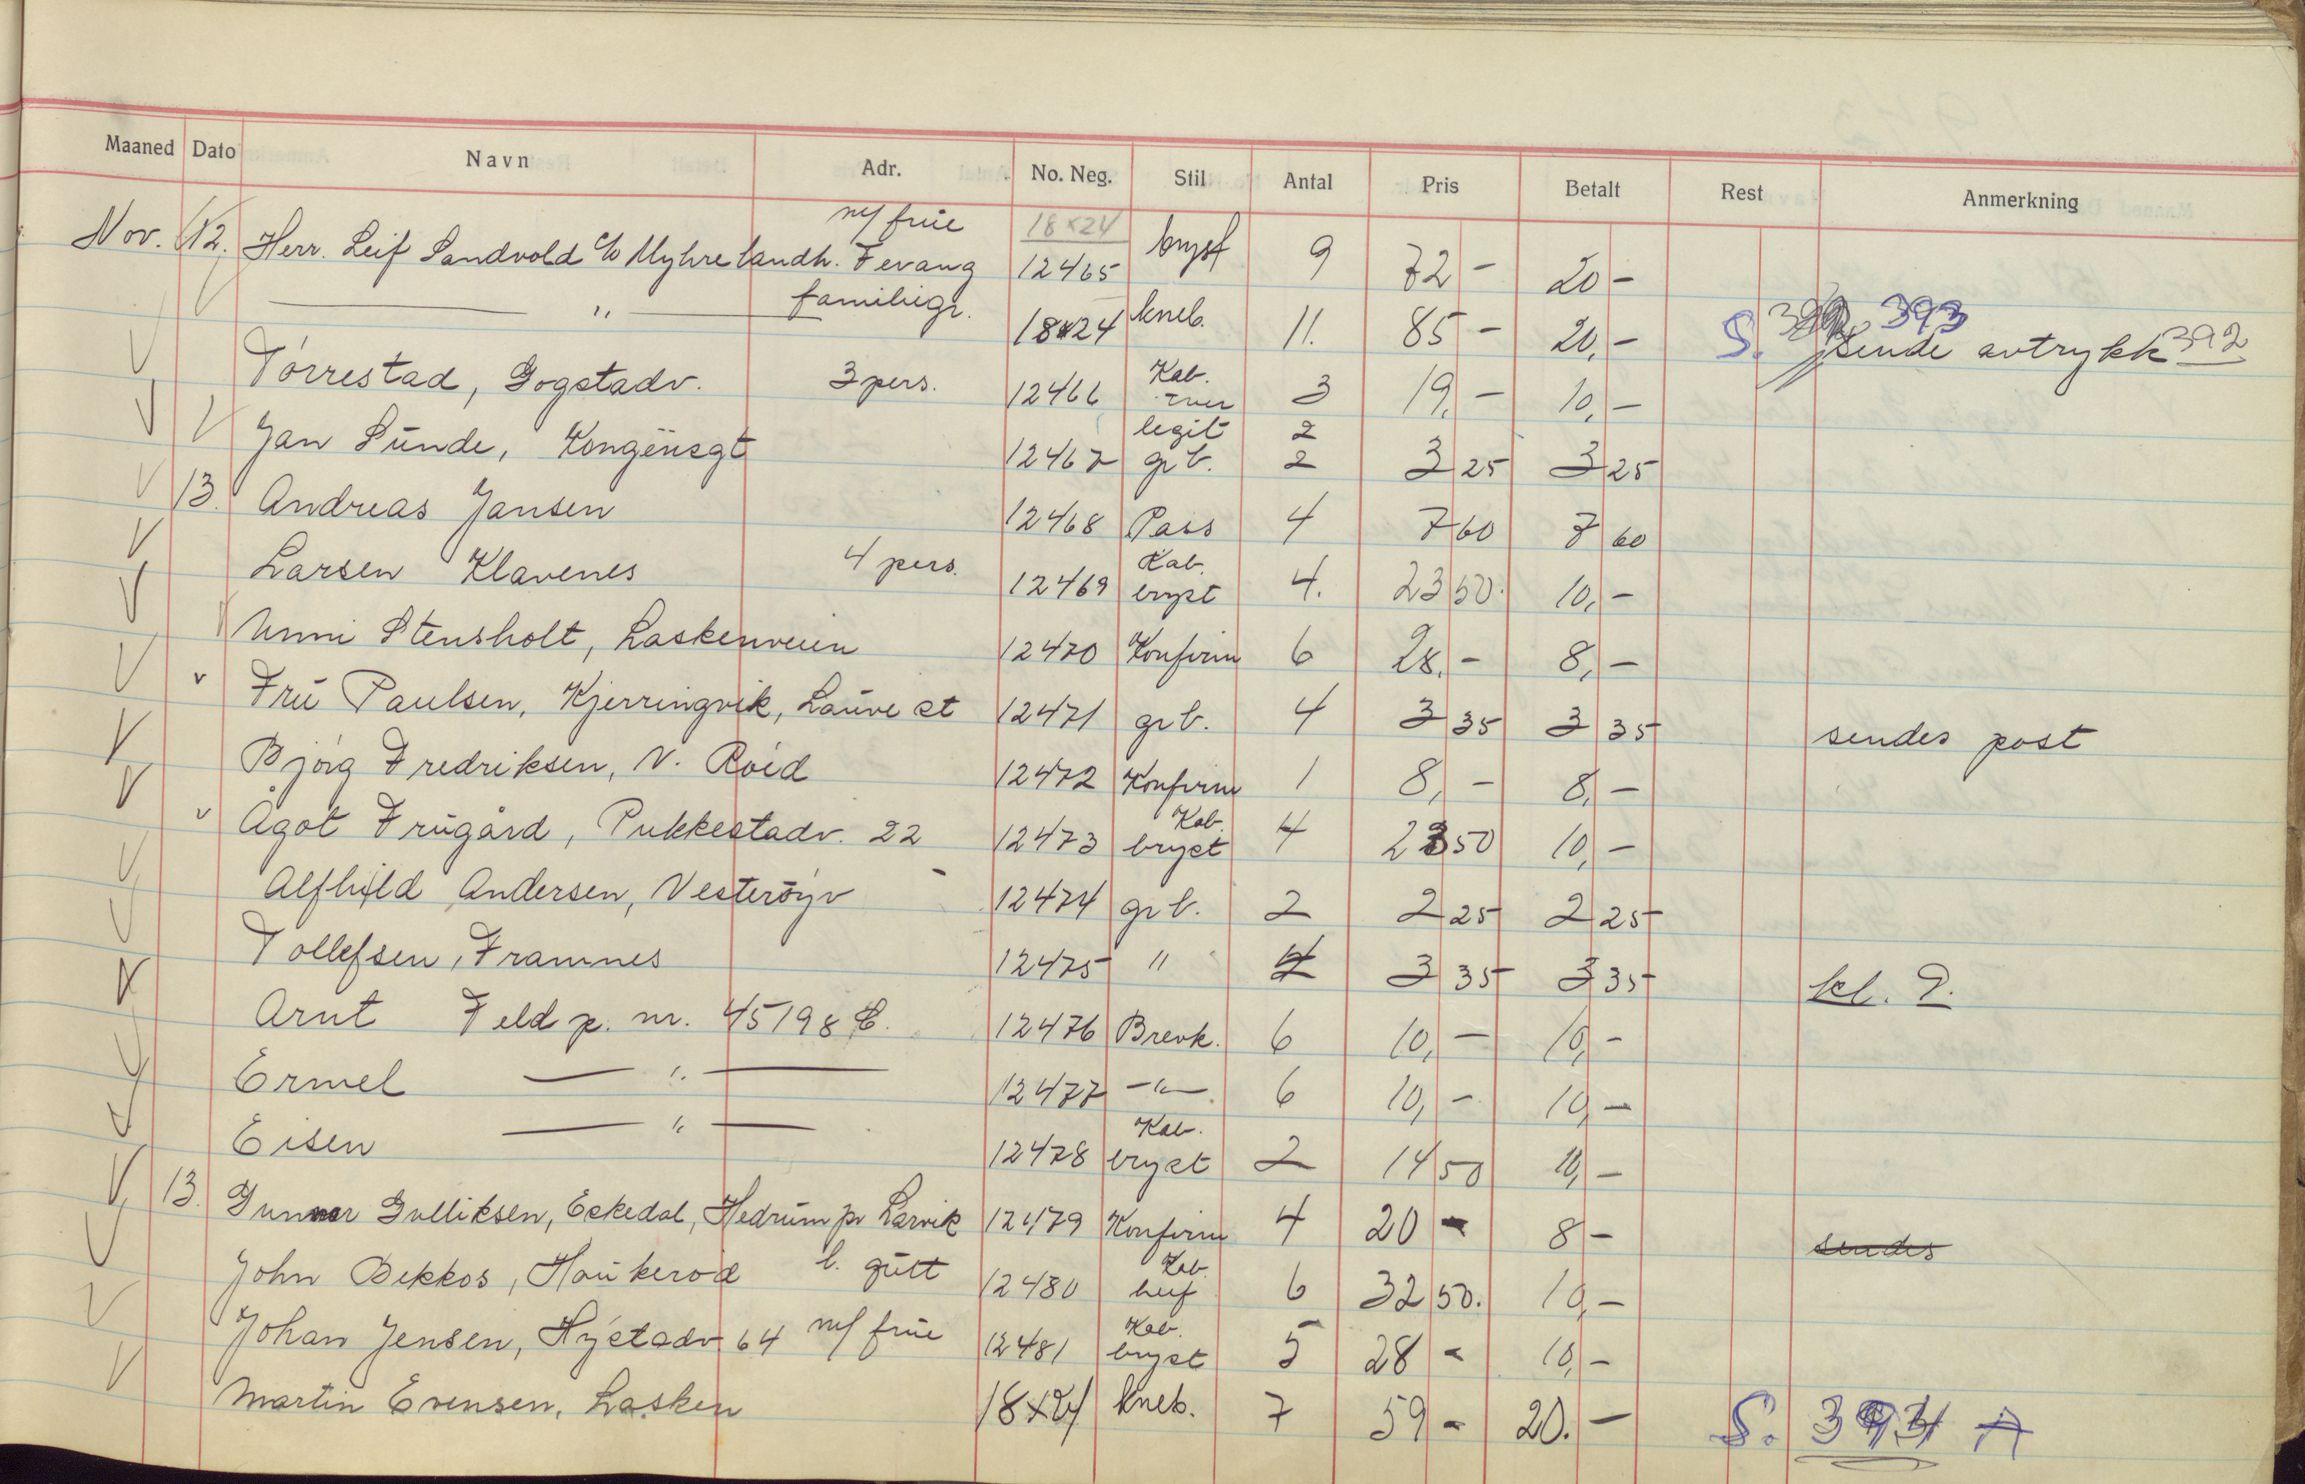 Maaned Dato Navn Adr. No. Neg. Stil Antal Pris Betalt Rest Anmerkning
m/ frue 18x24
Nov. 12. Herr. Leif Sandvold c/o Myhre landh. Fevang 12465 bryst 9 72 - 20 -
— " — familiegr. 18x24 kneb. 11. 85 - 20,- S. 393 sende avtrykk 392
Kab.
Törrestad, Gogstadv. 3 pers. 12466 tver 3 19,- 10,-
legit 2
Jan Sunde, Kongensgt 12467 gr b. 2 3 25 3 25
13. Andreas Jansen 12468 Pass 4 7 60 7 60
Kab.
Larsen Klavenes 4 pers. 12469 bryst 4. 23 50. 10,-
Unni Stensholt, Laskenveien 12470 Konfirm 6 28,- 8,-
v Fru Paulsen, Kjerringvik, Lauve st 12471 gr b. 4 3 35 3 35 sendes post
Bjørg Fredriksen, N. Röed 12472 Konfirm 1 8,- 8,-
Kab.
v Ågot Frugård, Pukkestadv. 22 12473 bryst 4 23 50 10,-
Alfhild Andersen, Vesteröyv 12474 gr b. 2 2 25 2 25
Tollefsen, Framnes 12475 " 4 3 35 3 35 kl. 2.
Arnt Feld p. nr. 45198 C. 12476 Brevk. 6 10,- 10,-
Ermel — " — 12477 -"- 6 10,- 10,-
Kab.
Eisen — " — 12478 bryst 2 14 50 10,-
13. Gunnar Gulliksen, Eskedal, Hedrum pr Larvik 12479 Konfirm 4 20 - 8 - sendes
Kab.
John Bekkos, Haukeröd l. gutt 12480 heif 6 32 50. 10,-
Kab.
Johan Jensen, Hystadv 64 m/ frue 12481 bryst 5 28 - 10,-
Martin Evensen, Lasken 18x24 kneb. 7 59 - 20.- S. 394 A